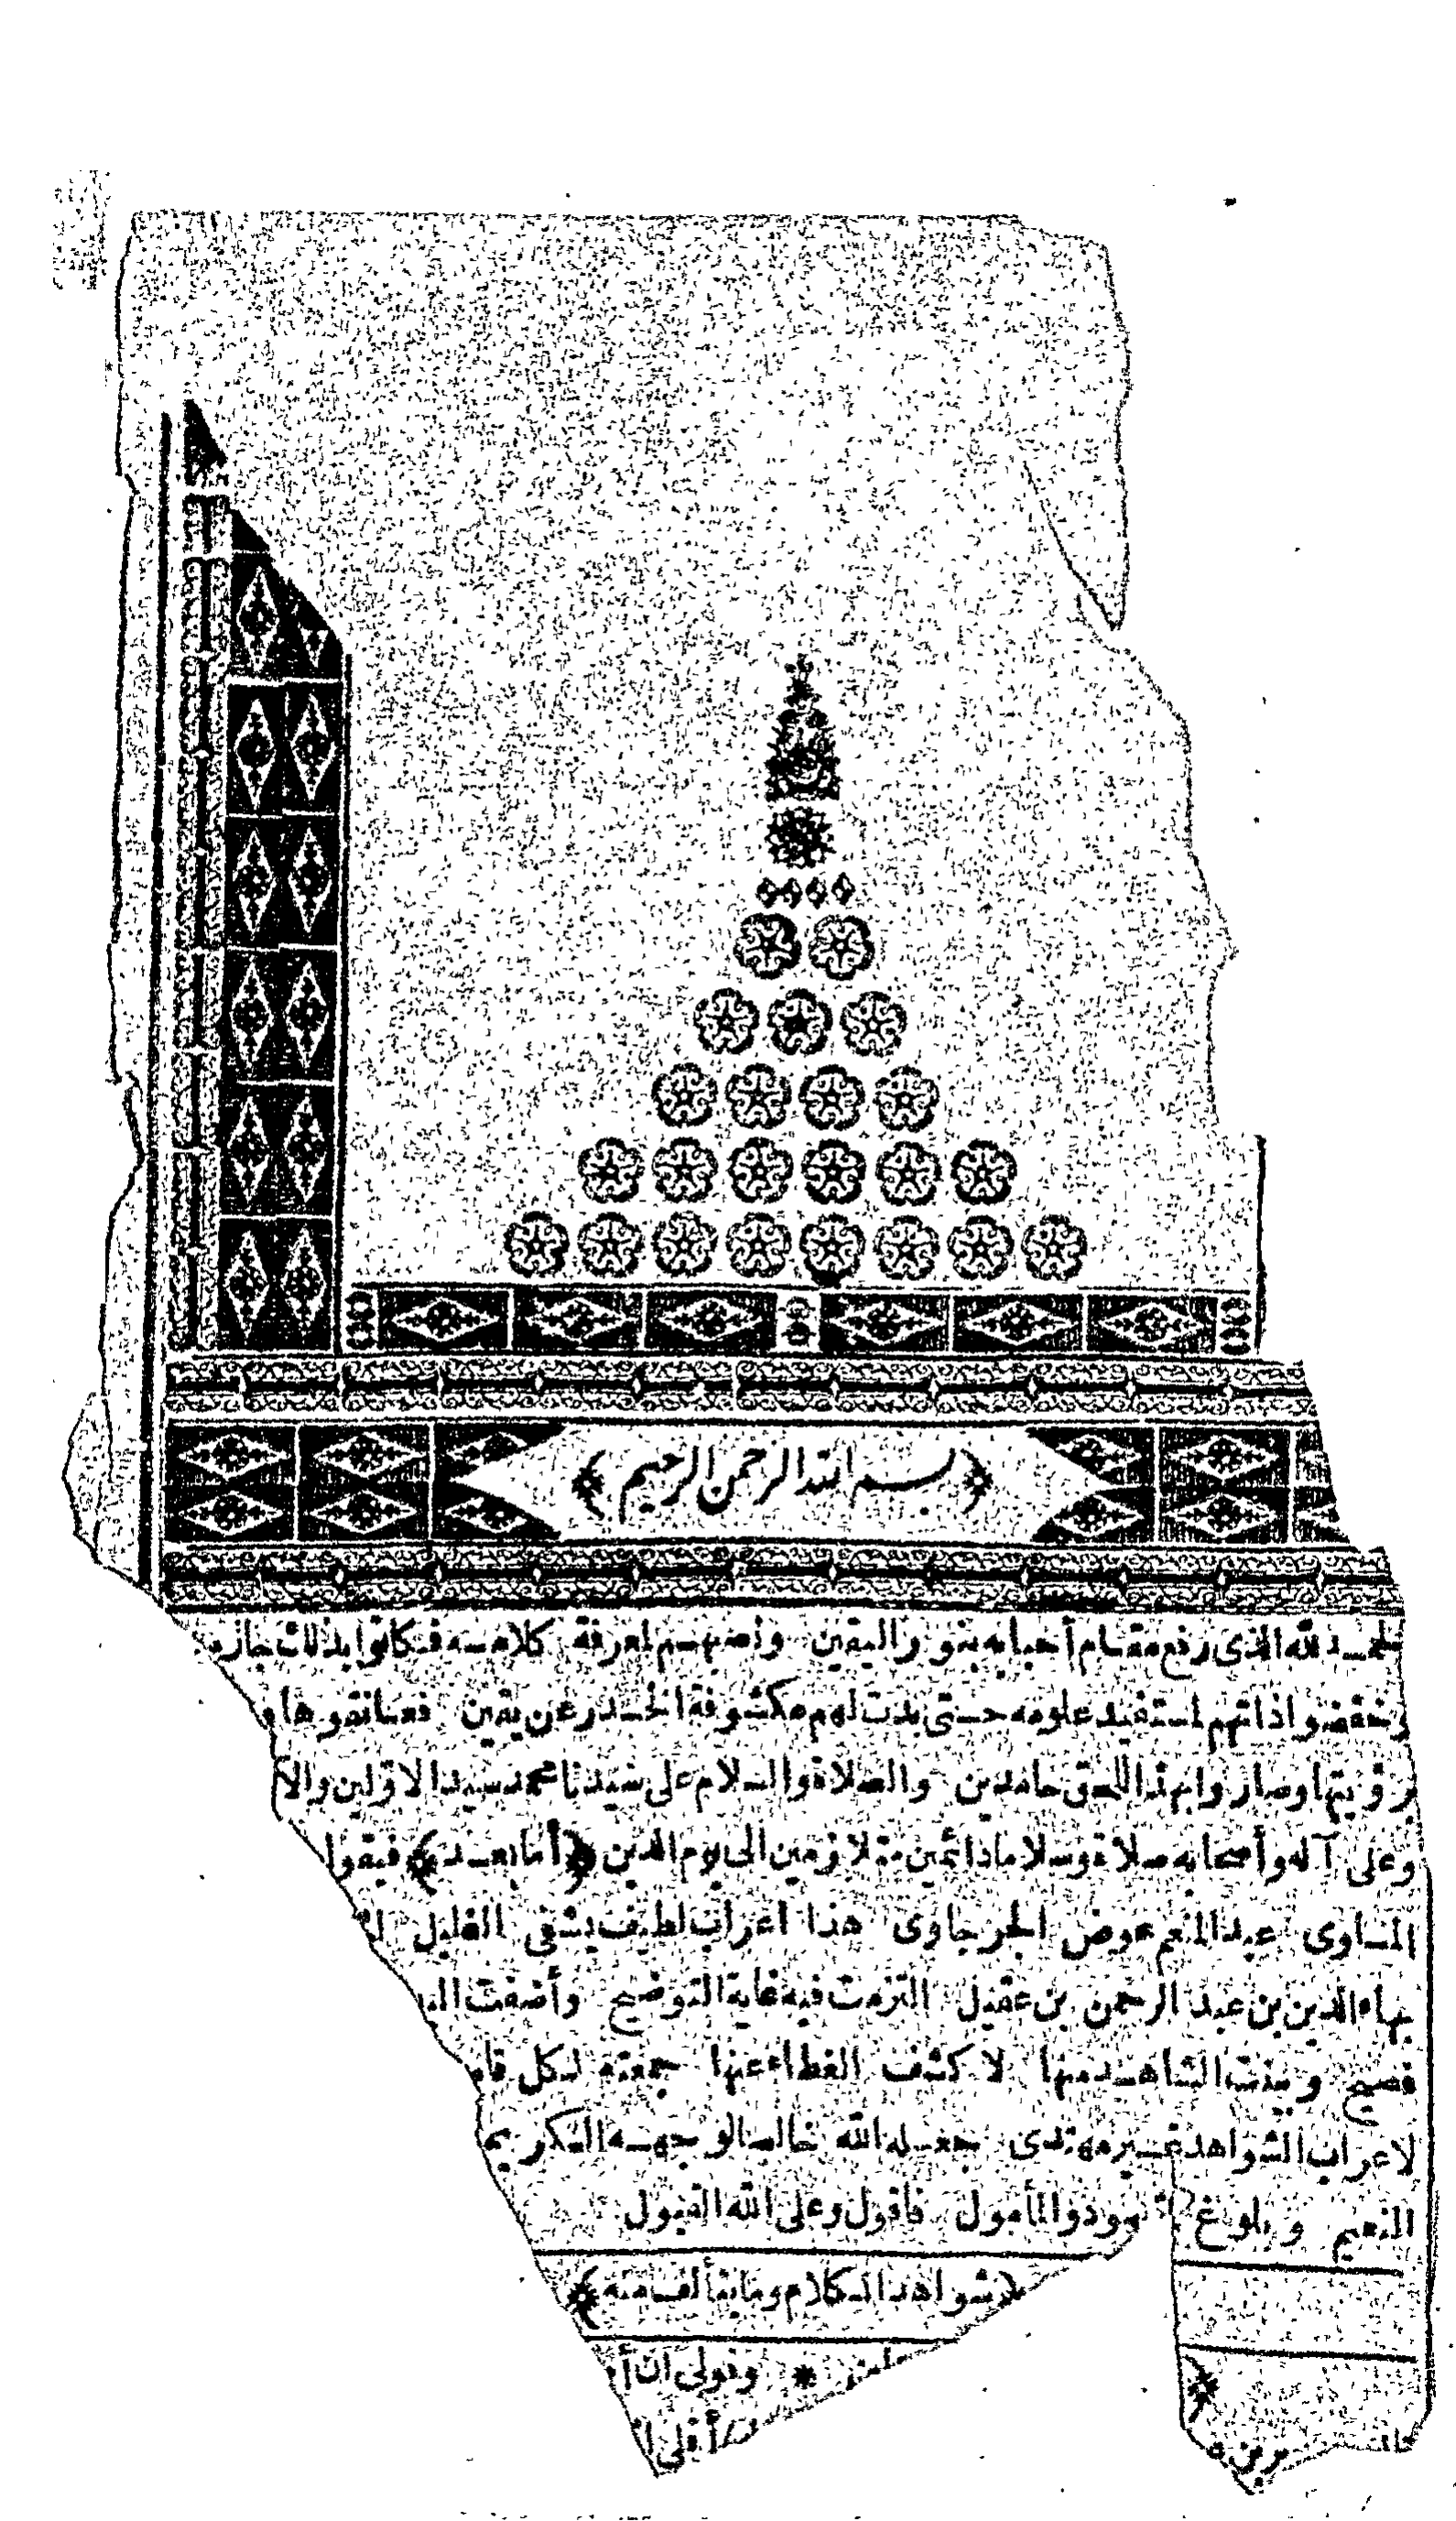 ﴿بسم الله الرحمن الرحيم﴾
الحمد لله الذى رفع مقام أحبابه بنور اليقين وأنصبهم لمعرفة كلامه فكانوا بذلك جاز
وخفضوا ذاتهم لتستفيد علومه حتى بدت لهم مكشوفة الخدر عن يقين فعانقوها
برؤيتها وصاروا بهذا اللحق حامدين والصلاة والسلام على سيدنا محمد سيد الاولين والا
وعلى آله وأصحابه صلاة وسلاما دائمين متلازمين الى يوم الدين ﴿أما بعد﴾ فيقول
المساوى عبد المنعم عوض الجرجاوى هذا اعراب لطيف يشفى الغليل
بهاء الدين بن عبد الرحمن بن عقيل التزمت فيه غاية التوضيح وأضفت
فصيح وبينت الشاهد منها لا كشف الغطاء عنها جمعته لكل
لاعراب الشواهد غير مهتدى جعله الله خالصا لوجهه الكريم
النعيم وبلوغ والمأمول فاقول وعلى الله القبول
﴿شواهد الكلام وما يتألف منه﴾
* وقولى ان أ
أقلى ا